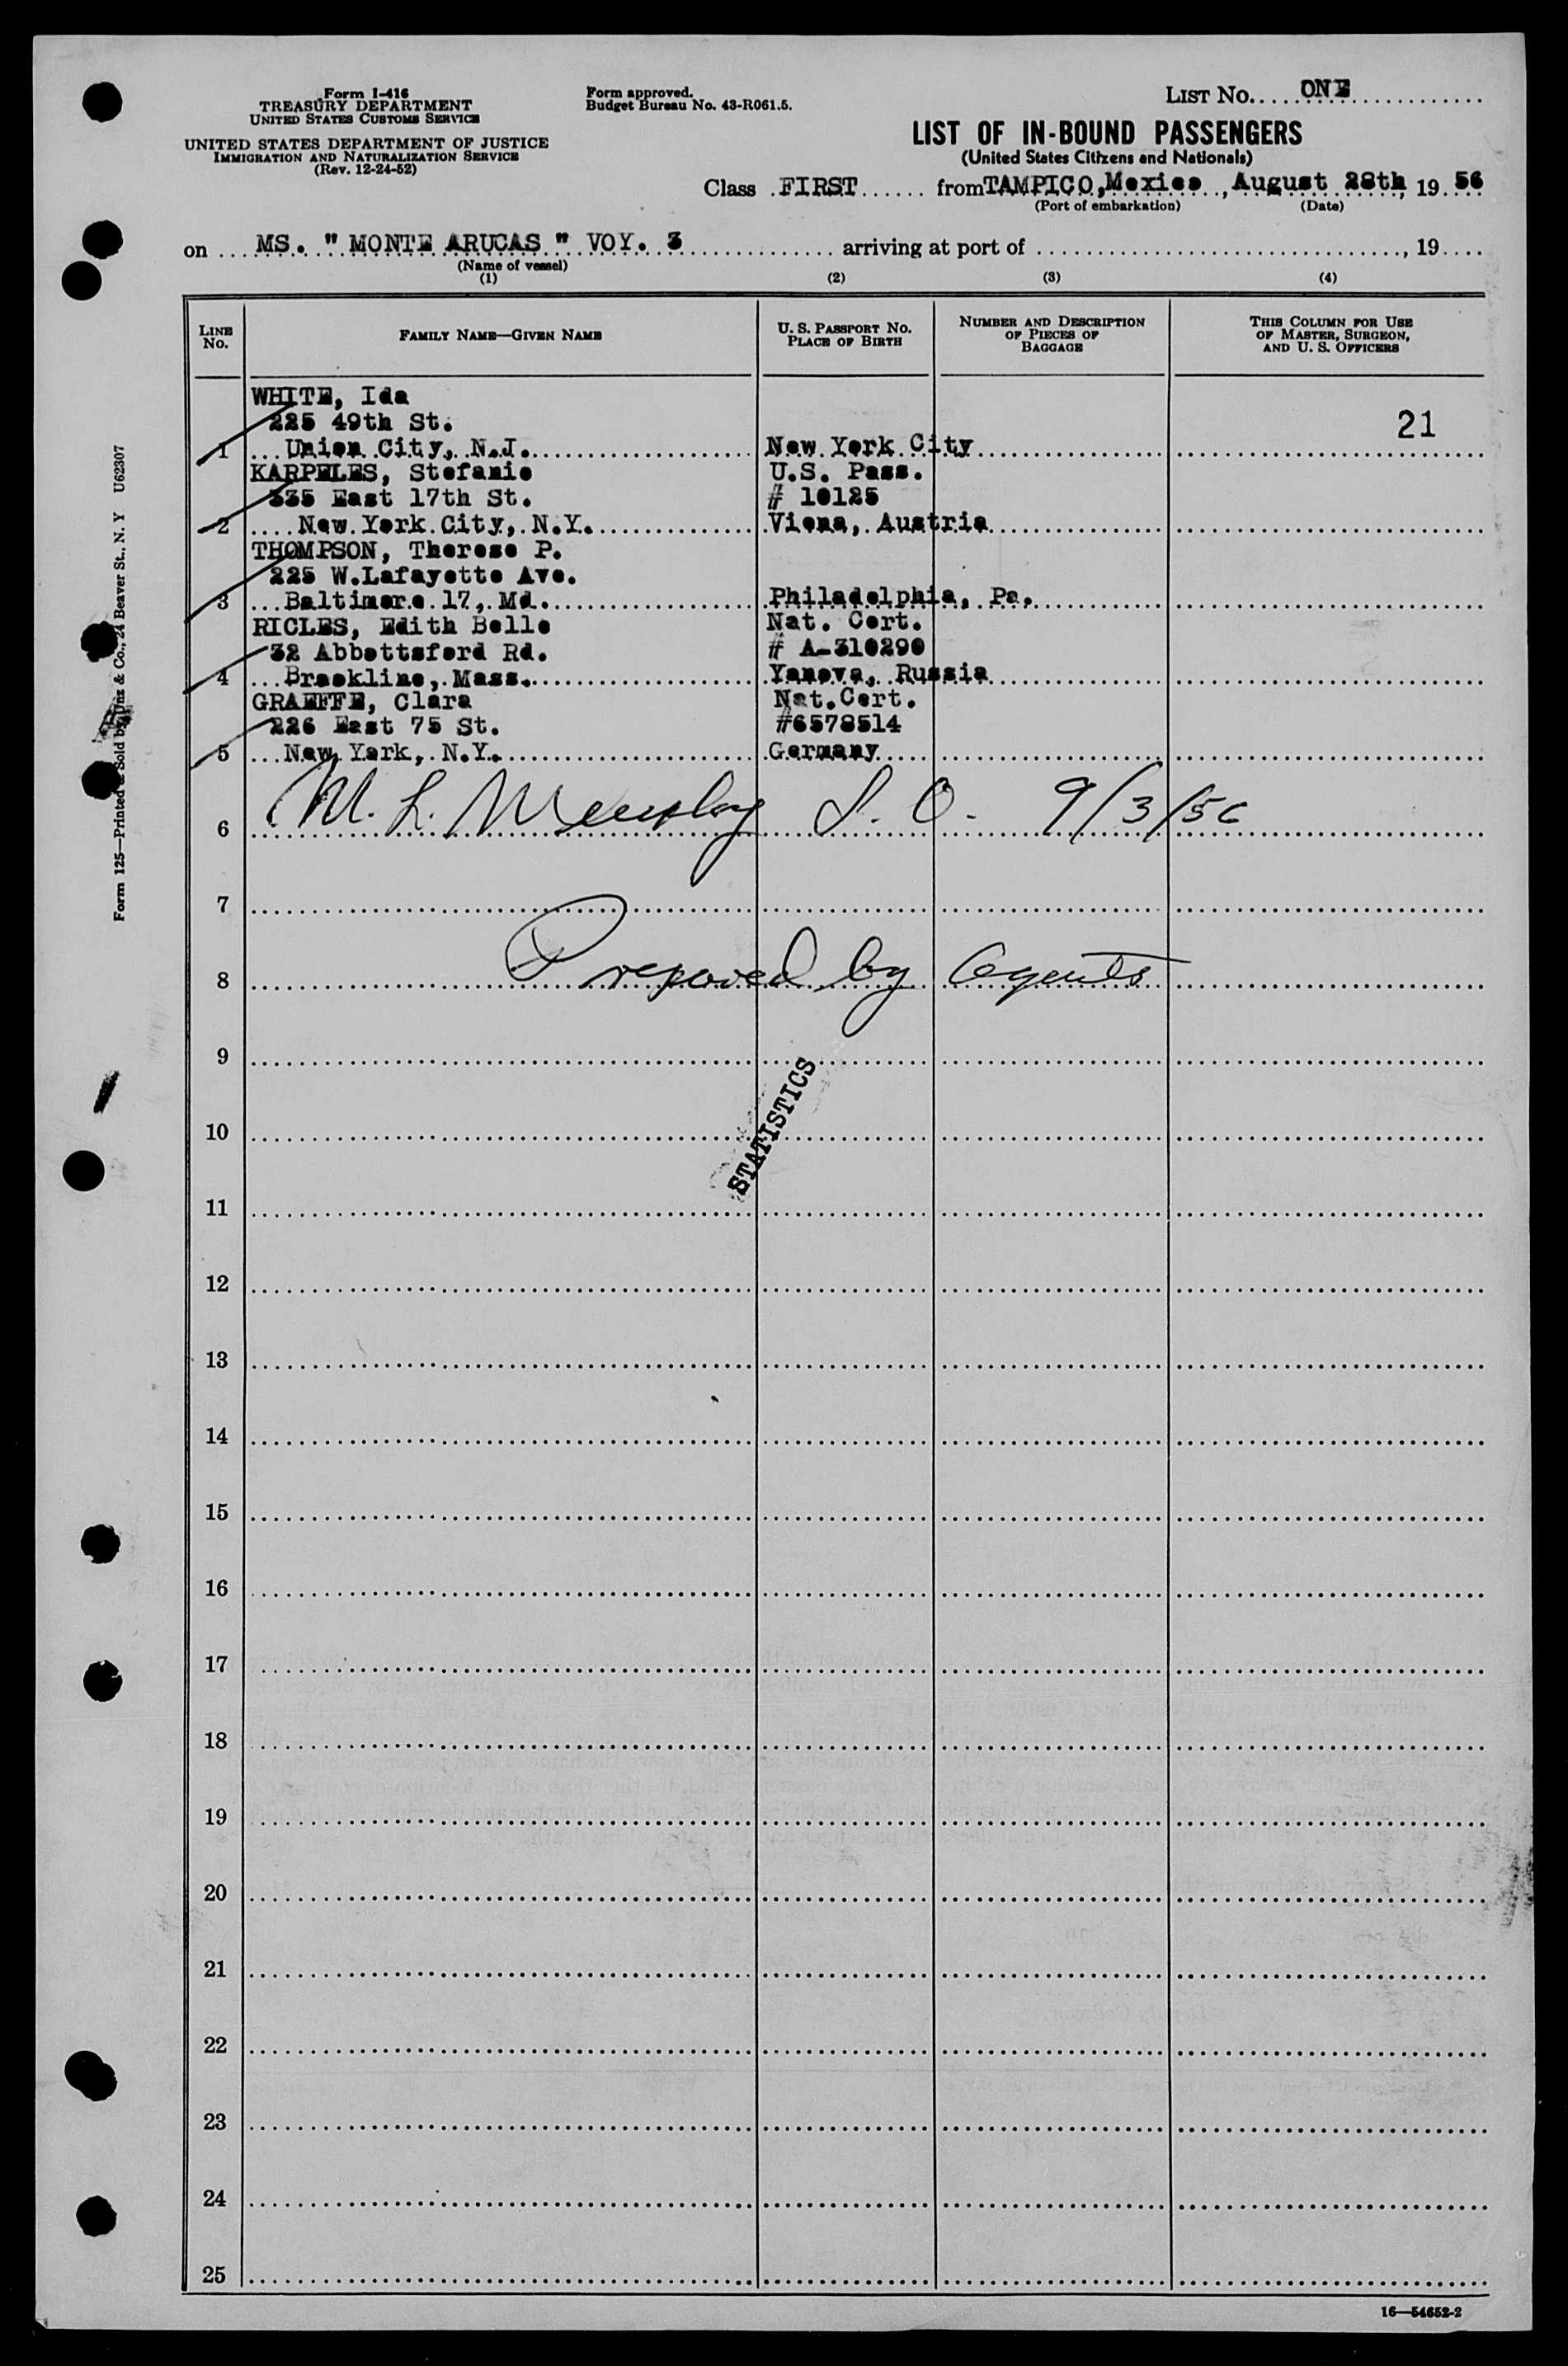 Form I-416
TREASURY DEPARTMENT
UNITED STATES CUSTOMS SERVICE
UNITED STATES DEPARTMENT OF JUSTICE
IMMIGRATION AND NATURALIZATION SERVICE
(Rev. 12-24-52)
Form approved.
Budget Bureau No. 43-R061.5.
LIST No. ONE
LIST OF IN-BOUND PASSENGERS
(United States Citizens and Nationals)
Class FIRST from TAMPICO, Mexico, August 28th, 19 56
(Port of embarkation) (Date)
on MS. " MONTE ARUCAS " VOY. 3 arriving at port of , 19
(Name of vessel)
(1) (2) (3) (4)
LINE No. FAMILY NAME—GIVEN NAME U. S. PASSPORT NO. PLACE OF BIRTH NUMBER AND DESCRIPTION OF PIECES OF BAGGAGE THIS COLUMN FOR USE OF MASTER, SURGEON, AND U. S. OFFICERS
WHITE, Ida
225 49th St. 21
1 Union City, N.J. New York City
KARPELES, Stefanie U.S. Pass.
335 East 17th St. # 10125
2 New York City, N.Y. Viena, Austria
THOMPSON, Therese P.
225 W.Lafayette Ave.
3 Baltimore 17, Md. Philadelphia, Pa.
RICLES, Edith Belle Nat. Cert.
32 Abbottsford Rd. # A-310290
4 Brookline, Mass. Yanova, Russia
GRAEFFE, Clara Nat.Cert.
226 East 75 St. #6578514
5 New York, N.Y. Germany
6 M. L. I. O. 9/3/56
7
8 Prepared by Agents
9
STATISTICS
10
11
12
13
14
15
16
17
18
19
20
21
22
23
24
25
16—54652-2
Form 125—Printed & Sold by Unz & Co., 24 Beaver St., N. Y U62307